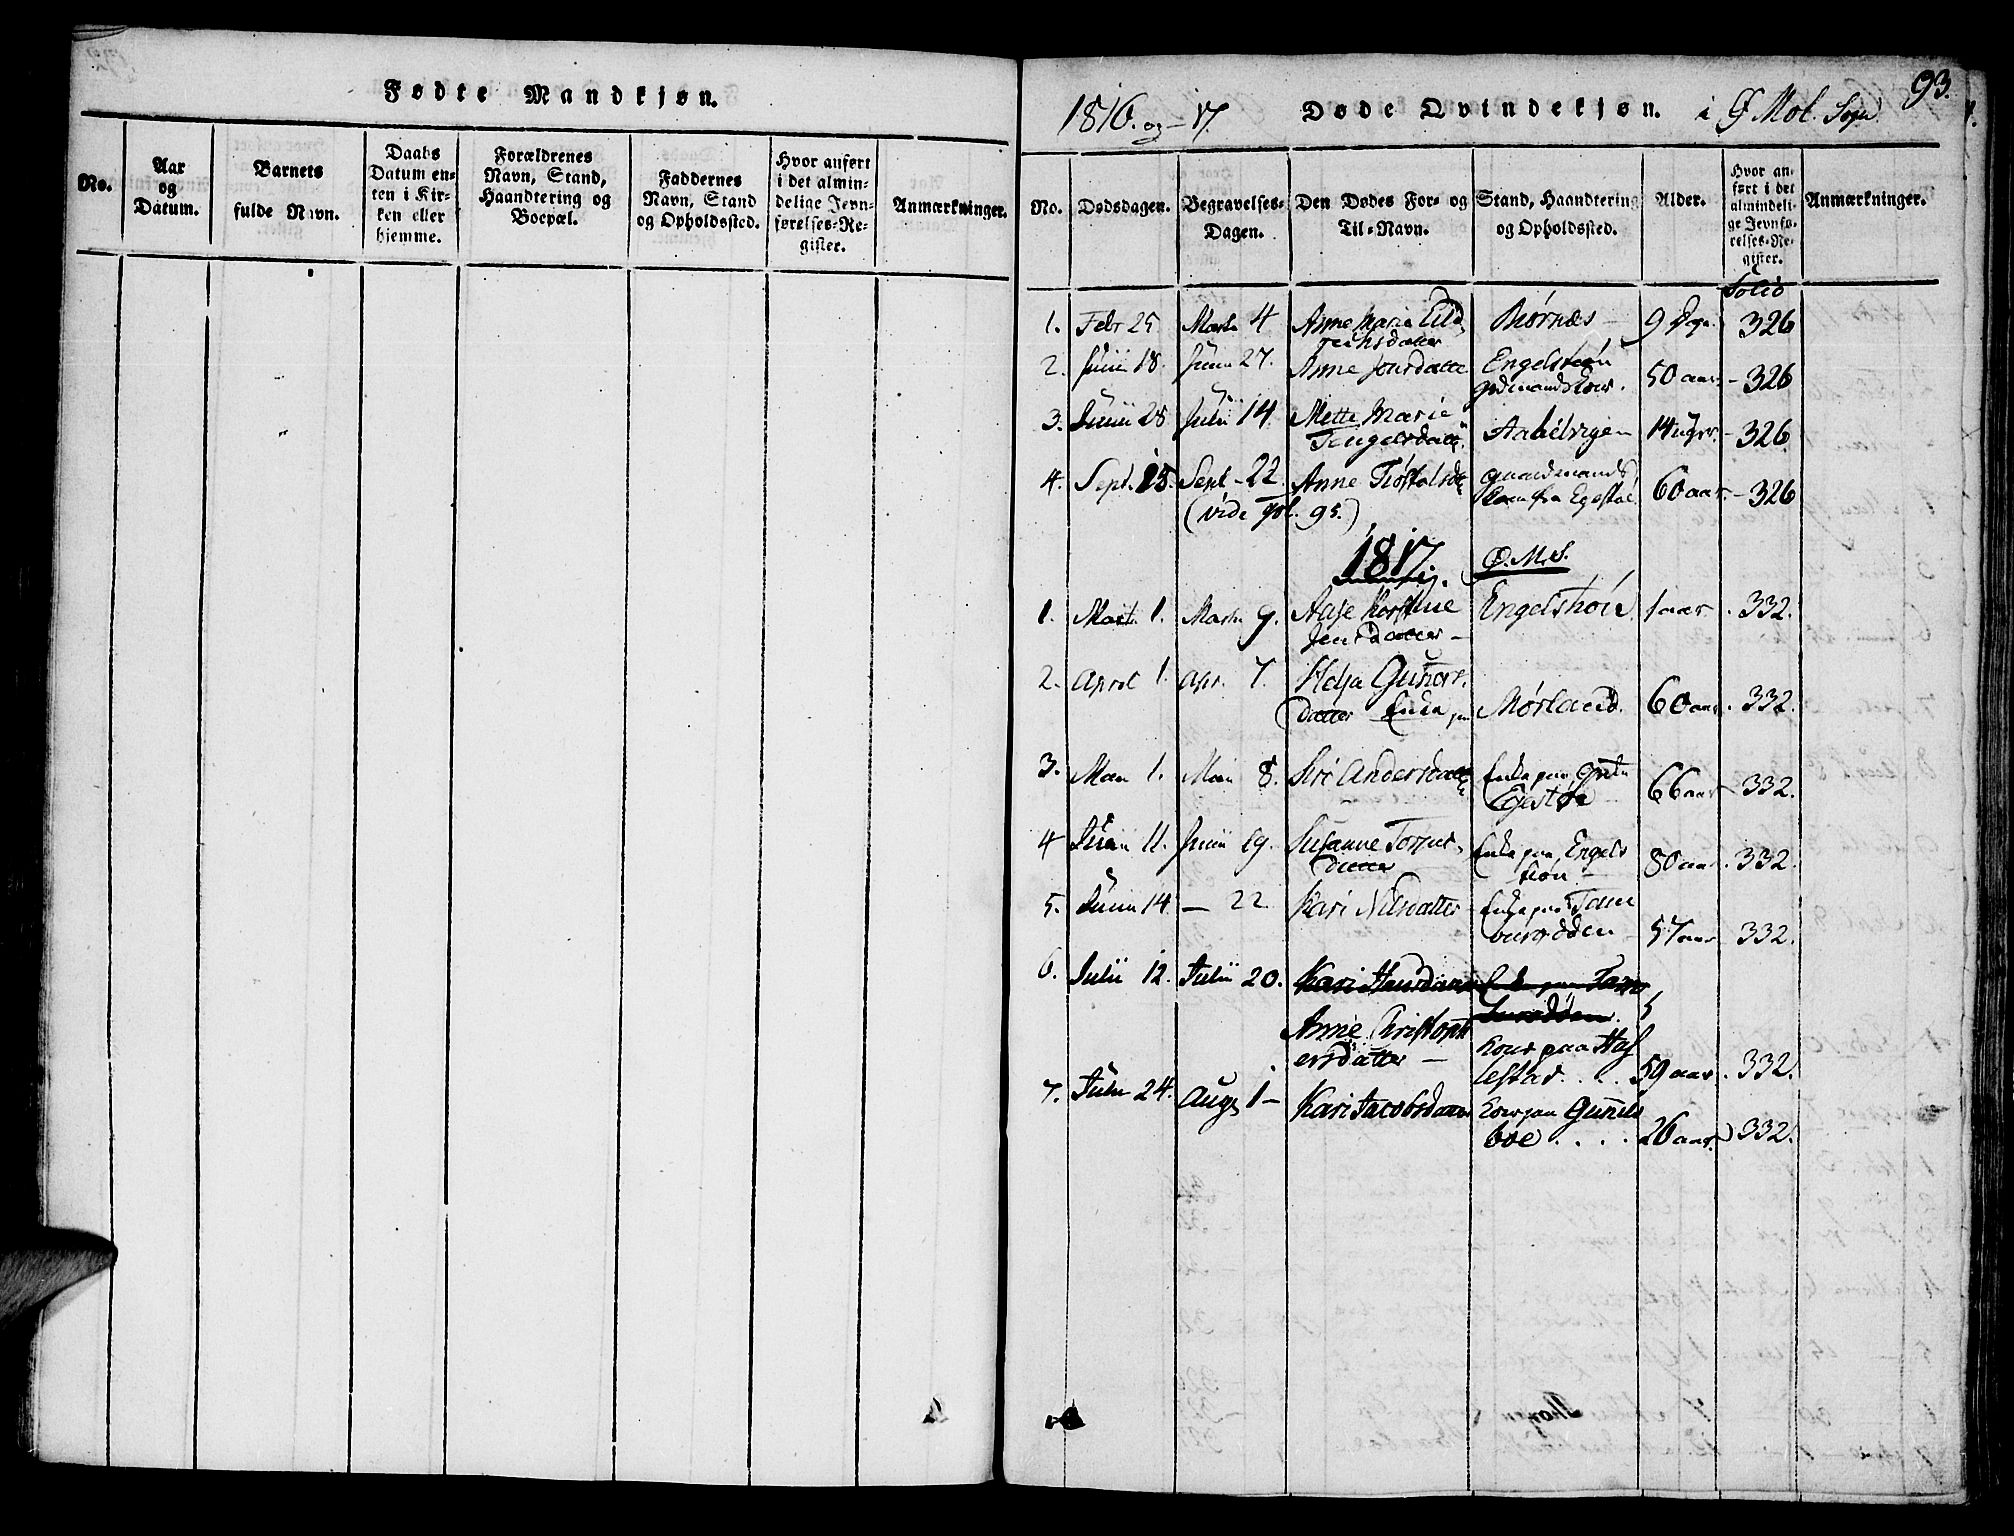 Fødte Mandkjøn.
No.
Aar
og
Datum.
Barnets
fulde Navn.
Daabs
Datum en-
ten i Kir-
ken eller
hjemme.
Forældrenes
Navn, Stand,
Haandtering og
Boepæl.
Faddernes
Navn, Stand
og Opholdssted.
Hvor anført
i det almin-
delige Jevn-
førelses-Re-
gister.
Anmærkninger.
93.
1816. og - 17. Døde Qvindekjøn. i Ø Mol. Sogn
No.
Dødsdagen.
Begravelses-
Dagen.
Den Dødes For- og
Til-Navn.
Stand, Haandtering
og Opholdssted.
Alder.
Hvor an-
ført i det
almindeli-
ge Jevnfø-
relses-Re-
gister.
Anmærkninger.
Folio
1. Febr 25 Marti 4 Anne Marie
datter 9 Dge. 326
2. Junii 18. Junii 27. Anne Jensdatte Engelshøn
50 aar. - 326
3. Junii 28 Julii 14. Mette Marie
Aabelvigen 14 uger. - 326
4. Sept. 15. Sept - 22 Anne gaardmands
60 aar. - 326
(vide fol. 95.)
1817. Ø. M. S.
1. Marti 1. Marti 9. Aase Kirstine Engelshøn 1 aar . 332.
Jensdatter -
2. April 1. Apr. 7. Helja Gunar.
datter Enke paa Mørland. 60 aar . 332.
3. Maii 1. Maii 8. Siri Andersdatte Enke paa
66 aar - 332.
4 Junii 11. Junii 19. Susanne
datter Enke paa Engels
høn - 80 aar . 332.
5. Junii 14. — 22. Kari Nilsdatter Enke paa Tam
57 aar 332.
6. Julii 12. Julii 20. Kari
Anne Christoph
ersdatter — Kone paa Haf
. . 59 aar . 332.
7. Julii 24. Aug. 1 - Kari Jacobsdatter Kone paa Gunels
boe . . . . 26 aar. 332.